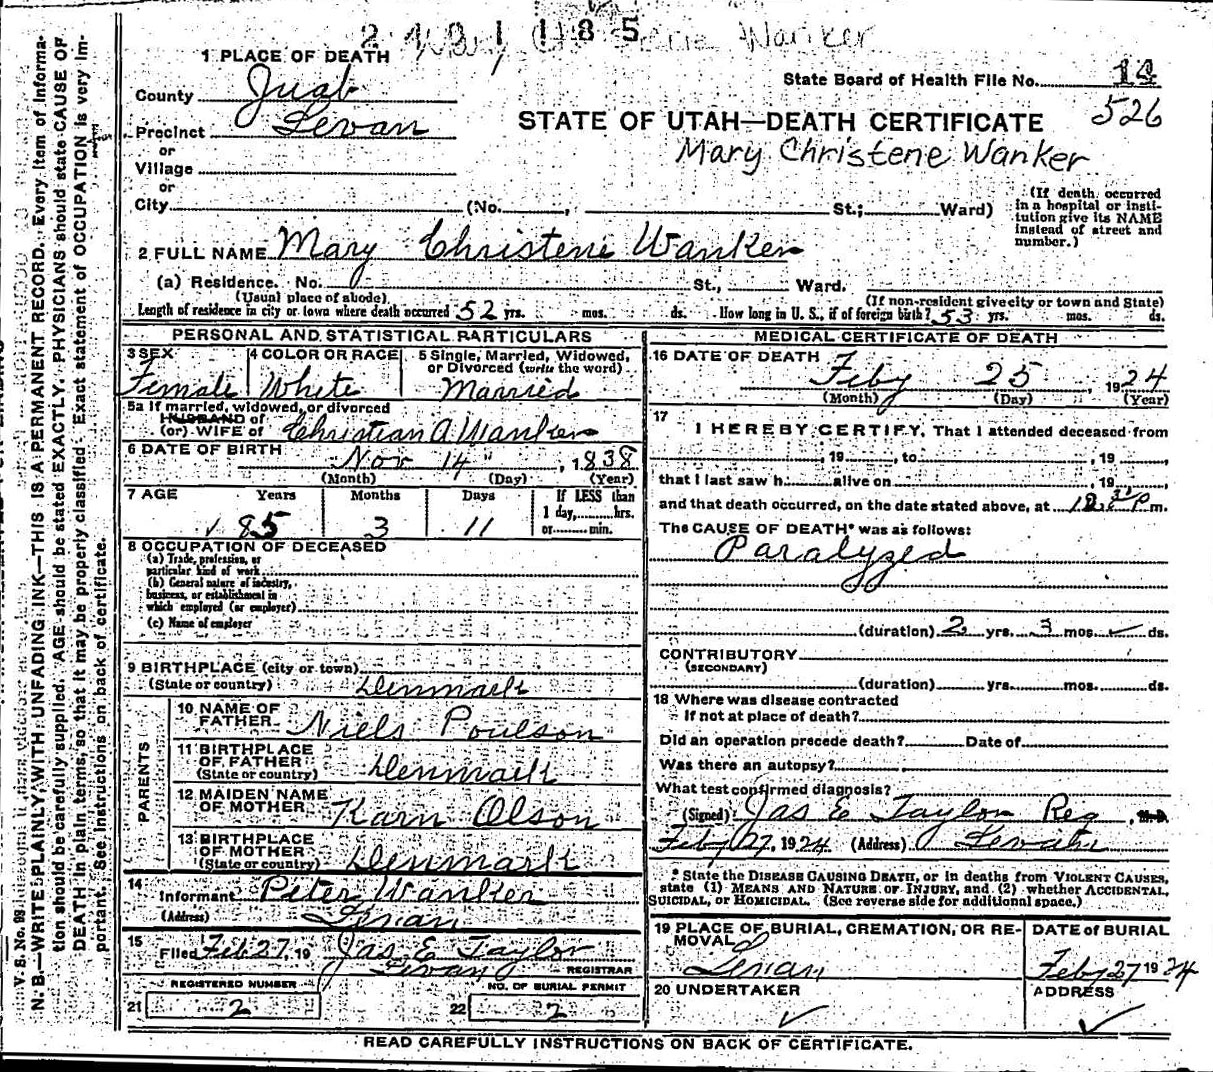 1 PLACE OF DEATH
County Juab
State Board of Health File No. 14
526
Precinct Levan
or
Village
or
City (No. , St.; Ward)
STATE OF UTAH—DEATH CERTIFICATE
Mary Christene Wanker
(If death occurred
in a hospital or insti-
tution give its NAME
instead of street and
number.)
2 FULL NAME Mary Christene Wanker
(a) Residence. No. St., Ward.
(Usual place of abode)
(If non-resident give city or town and State)
Length of residence in city or town where death occurred 52 yrs. mos. ds. How long in U. S., if of foreign birth? 53 yrs. mos. ds.
PERSONAL AND STATISTICAL PARTICULARS
3 SEX
Female
4 COLOR OR RACE
White
5 Single, Married, Widowed,
or Divorced (write the word)
Married
5a If married, widowed, or divorced
HUSBAND of
(or) WIFE of Christian A Wanker
6 DATE OF BIRTH
Nov 14 , 1838
(Month) (Day) (Year)
7 AGE Years Months Days If LESS than
1 day, hrs.
or min.
85 3 11
8 OCCUPATION OF DECEASED
(a) Trade, profession, or
particular kind of work
(b) General nature of industry,
business, or establishment in
which employed (or employer)
(c) Name of employer
9 BIRTHPLACE (city or town)
(State or country) Denmark
PARENTS
10 NAME OF
FATHER Niels Poulson
11 BIRTHPLACE
OF FATHER
(State or country) Denmark
12 MAIDEN NAME
OF MOTHER Karn Olson
13 BIRTHPLACE
OF MOTHER
(State or country) Denmark
14
Informant Peter Wanker
(Address) Levan
15
Filed Feb 27, 19 Jas E Taylor
Levan REGISTRAR
REGISTERED NUMBER NO. OF BURIAL PERMIT
21 2 22 2
MEDICAL CERTIFICATE OF DEATH
16 DATE OF DEATH
Feby 25 , 1924
(Month) (Day) (Year)
17
I HEREBY CERTIFY, That I attended deceased from
, 19 , to , 19 ,
that I last saw h alive on , 19 ,
and that death occurred, on the date stated above, at 12 30 P m.
The CAUSE OF DEATH* was as follows:
Paralyzed
(duration) 2 yrs. 3 mos. ✓ ds.
CONTRIBUTORY
(SECONDARY)
(duration) yrs. mos. ds.
18 Where was disease contracted
If not at place of death?
Did an operation precede death? Date of
Was there an autopsy?
What test confirmed diagnosis?
(Signed) Jas E Taylor Reg , M.D.
Feby 27, 1924 (Address) Levan
* State the DISEASE CAUSING DEATH, or in deaths from VIOLENT CAUSES,
state (1) MEANS AND NATURE OF INJURY, and (2) whether ACCIDENTAL,
SUICIDAL, or HOMICIDAL. (See reverse side for additional space.)
19 PLACE OF BURIAL, CREMATION, OR RE-
MOVAL
Levan
DATE OF BURIAL
Feby 27 1924
20 UNDERTAKER
✓
ADDRESS
✓
READ CAREFULLY INSTRUCTIONS ON BACK OF CERTIFICATE.
V. S. No. 98
N. B.—WRITE PLAINLY WITH UNFADING INK—THIS IS A PERMANENT RECORD. Every item of informa-
tion should be carefully supplied. AGE should be stated EXACTLY. PHYSICIANS should state CAUSE OF
DEATH in plain terms, so that it may be properly classified. Exact statement of OCCUPATION is very im-
portant. See instructions on back of certificate.